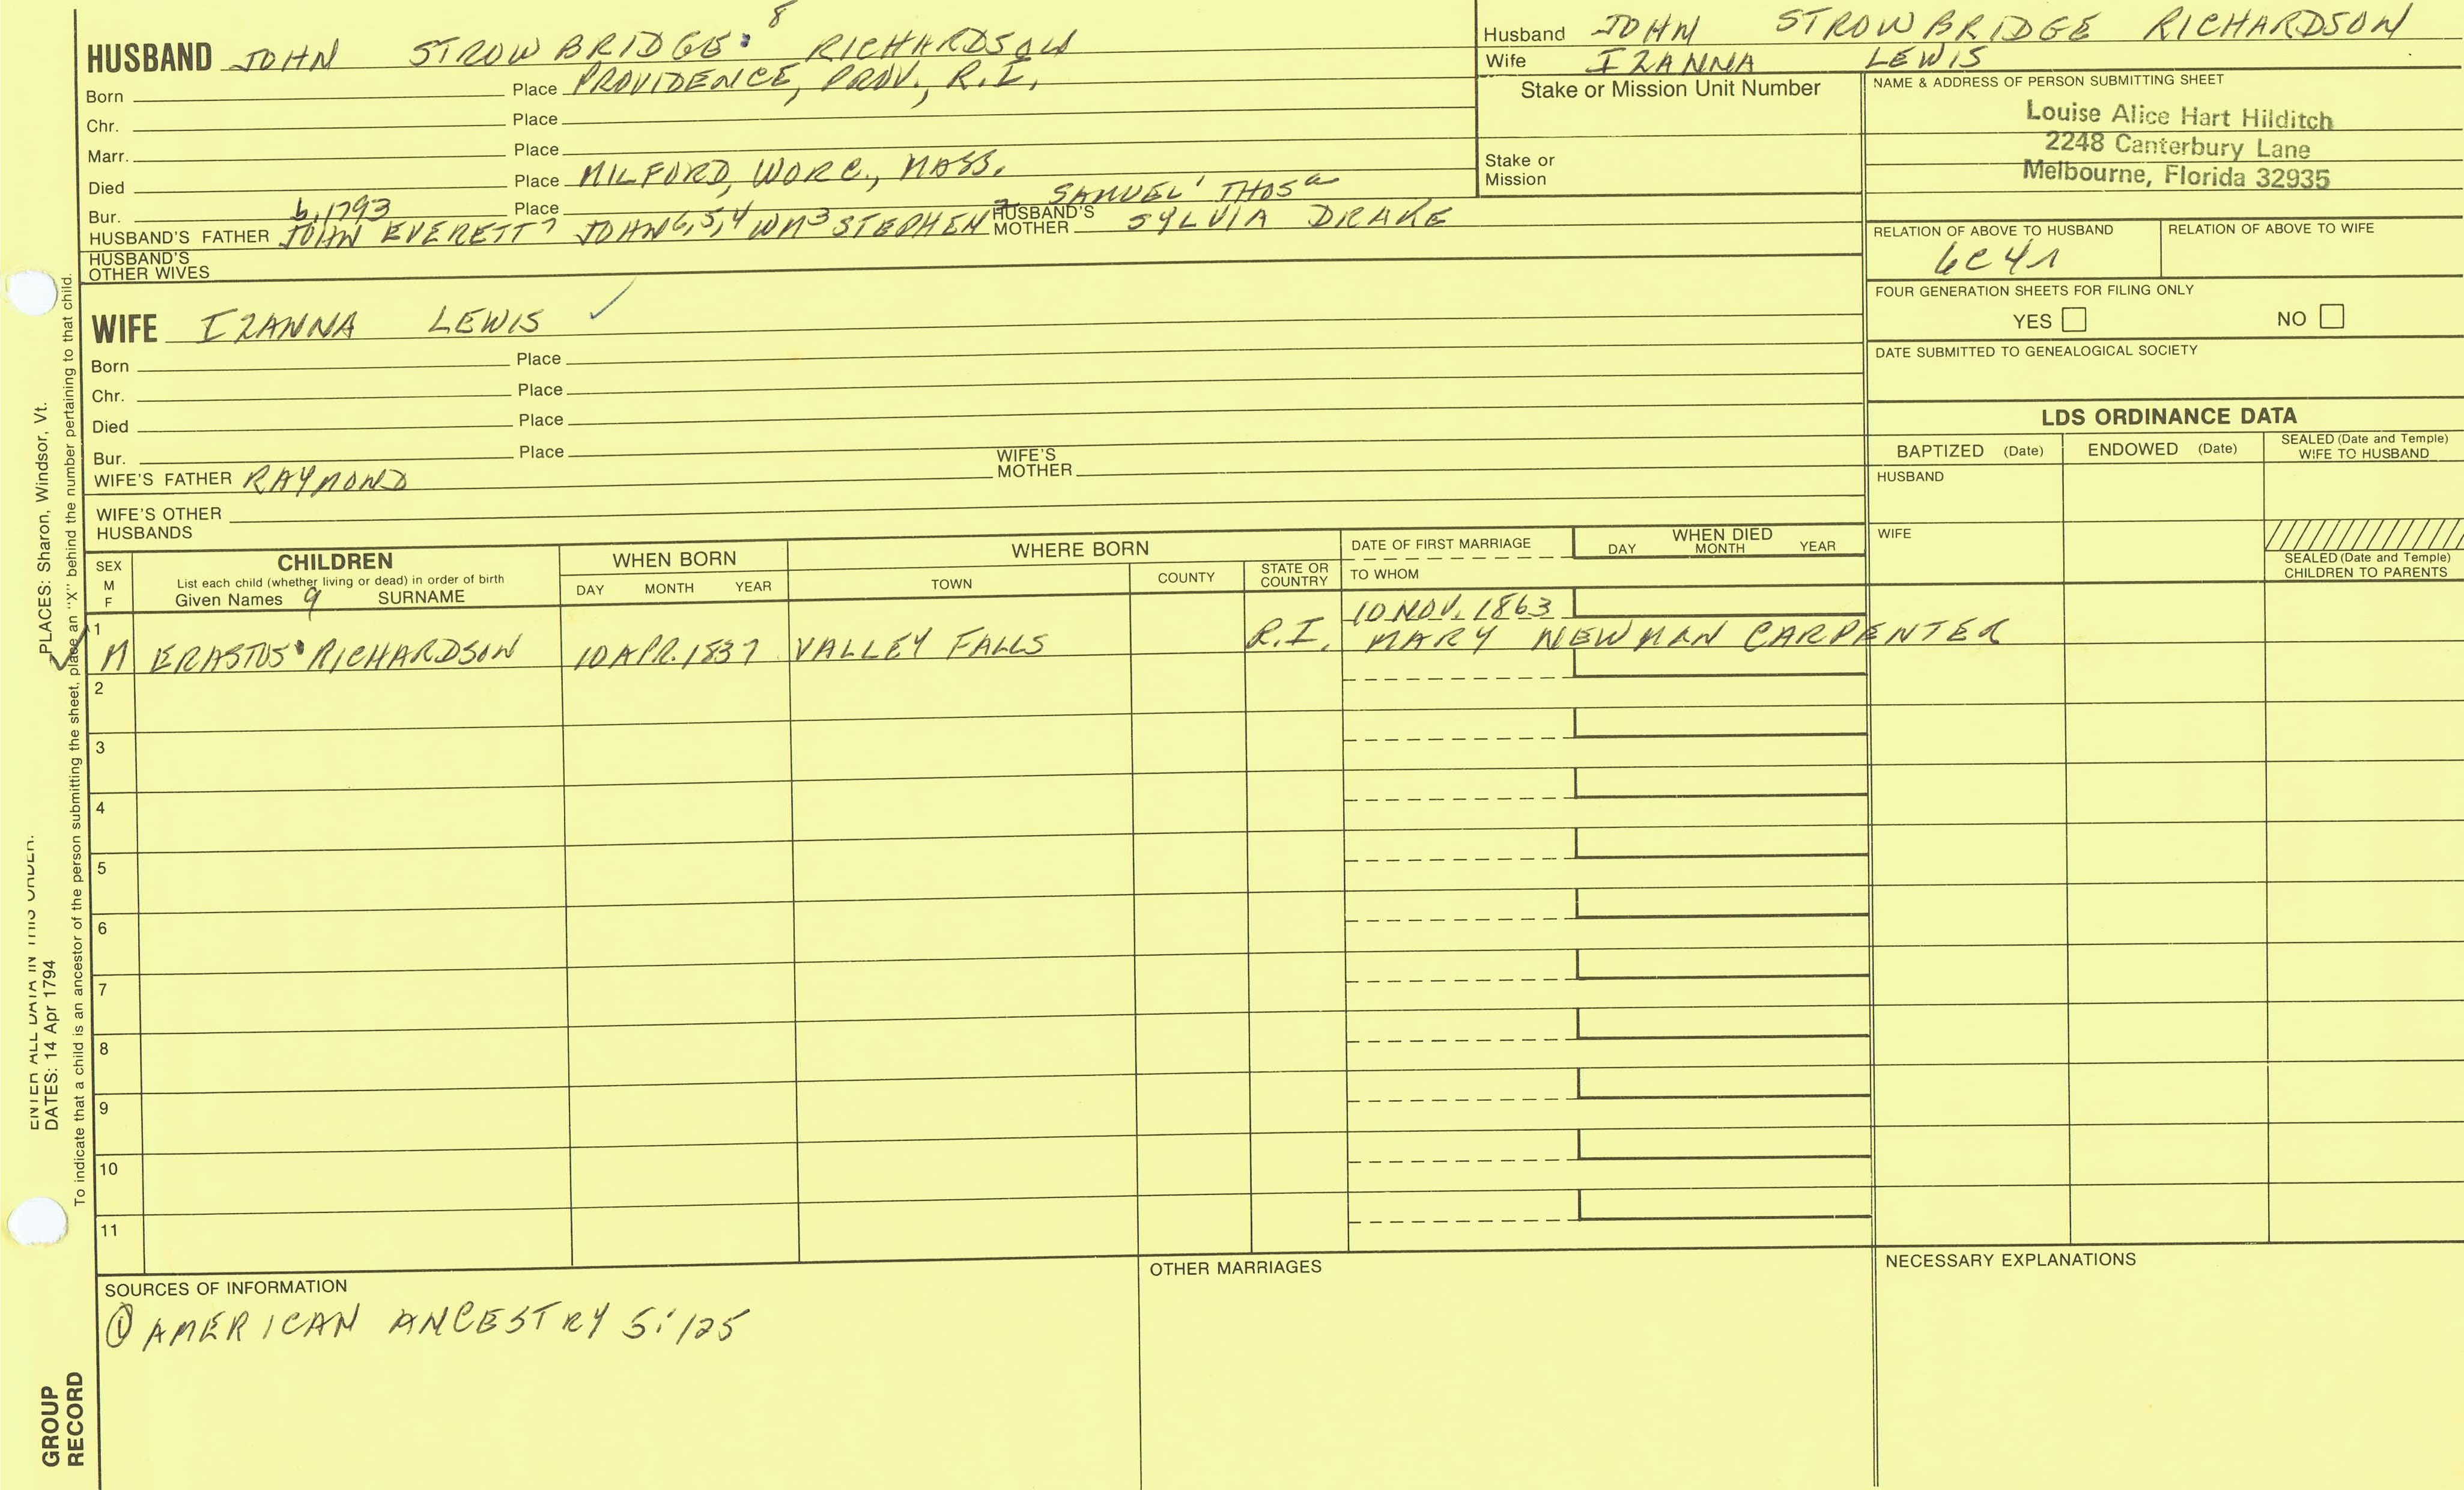 8
HUSBAND JOHN STROWBRIDGE RICHARDSON
Born Place PROVIDENCE, PROV., R.I.
Chr. Place
Marr. Place
Died Place MILFORD, WORC., MASS.
Bur. Place SAMUEL 1 THOS a
b. 1793
HUSBAND'S FATHER JOHN EVERETT 7 JOHN 6,5,4 WM 3 STEPHEN 2 HUSBAND'S MOTHER SYLVIA DRAKE
HUSBAND'S OTHER WIVES
Husband JOHN STROWBRIDGE RICHARDSON
Wife IZANNA LEWIS
Stake or Mission Unit Number
Stake or
Mission
NAME & ADDRESS OF PERSON SUBMITTING SHEET
Louise Alice Hart Hilditch
2248 Canterbury Lane
Melbourne, Florida 32935
RELATION OF ABOVE TO HUSBAND RELATION OF ABOVE TO WIFE
6C4r
FOUR GENERATION SHEETS FOR FILING ONLY
YES NO
DATE SUBMITTED TO GENEALOGICAL SOCIETY
WIFE IZANNA LEWIS ✓
Born Place
Chr. Place
Died Place
Bur. Place
WIFE'S FATHER RAYMOND WIFE'S MOTHER
WIFE'S OTHER
HUSBANDS
LDS ORDINANCE DATA
BAPTIZED (Date) ENDOWED (Date) SEALED (Date and Temple) WIFE TO HUSBAND
HUSBAND
WIFE
SEALED (Date and Temple)
CHILDREN TO PARENTS
SEX M F
CHILDREN
List each child (whether living or dead) in order of birth
Given Names 9 SURNAME
WHEN BORN
DAY MONTH YEAR
WHERE BORN
TOWN COUNTY STATE OR COUNTRY
DATE OF FIRST MARRIAGE
TO WHOM
WHEN DIED
DAY MONTH YEAR
1 10 NOV. 1863
✓ M ERASTUS RICHARDSON 10 APR. 1837 VALLEY FALLS R.I. MARY NEWMAN CARPENTER
2
3
4
5
6
7
8
9
10
11
SOURCES OF INFORMATION
① AMERICAN ANCESTRY 5:125
OTHER MARRIAGES
NECESSARY EXPLANATIONS
ENTER ALL DATA IN THIS ORDER:
DATES: 14 Apr 1794 PLACES: Sharon, Windsor, Vt.
To indicate that a child is an ancestor of the person submitting the sheet, place an "X" behind the number pertaining to that child.
GROUP
RECORD